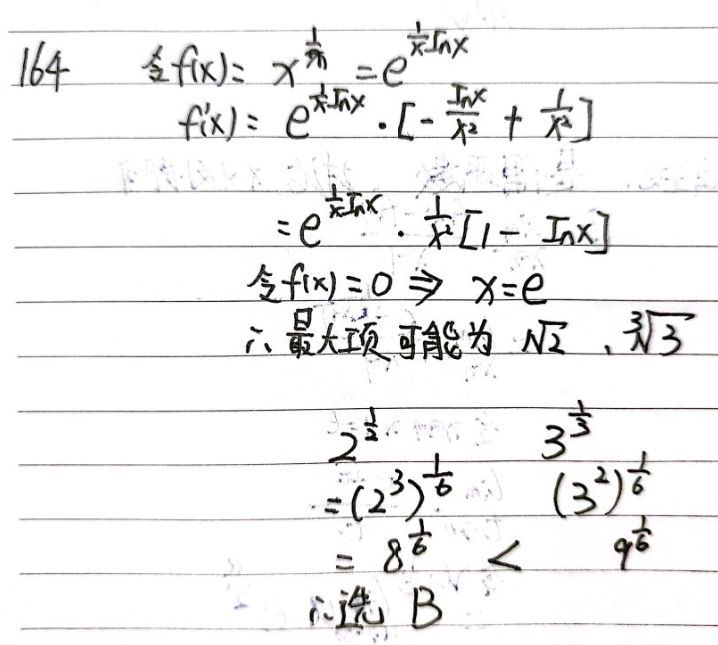 164 令f(x)= x^{\frac{1}{x}} = e^{\frac{1}{x}lnx}
f'(x)= e^{\frac{1}{x}lnx} · [-\frac{lnx}{x²} + \frac{1}{x²}]
= e^{\frac{1}{x}lnx} · \frac{1}{x²}[1 - lnx]
令f'(x)=0 ⇒ x=e
∴最大项可能为 √2 、∛3
2^{\frac{1}{2}} 3^{\frac{1}{3}}
=(2³)^{\frac{1}{6}} (3²)^{\frac{1}{6}}
= 8^{\frac{1}{6}} < 9^{\frac{1}{6}}
∴选 B